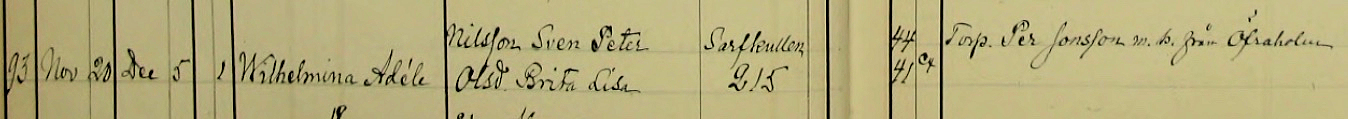 Nilsson Sven Peter Sarfkullen 44 Torp. Per Jonsson m. h. från Öfraholm
93 Nov 20 Dec 5 1 Wilhelmina Adéle Olsd. Brita Lisa 215 41